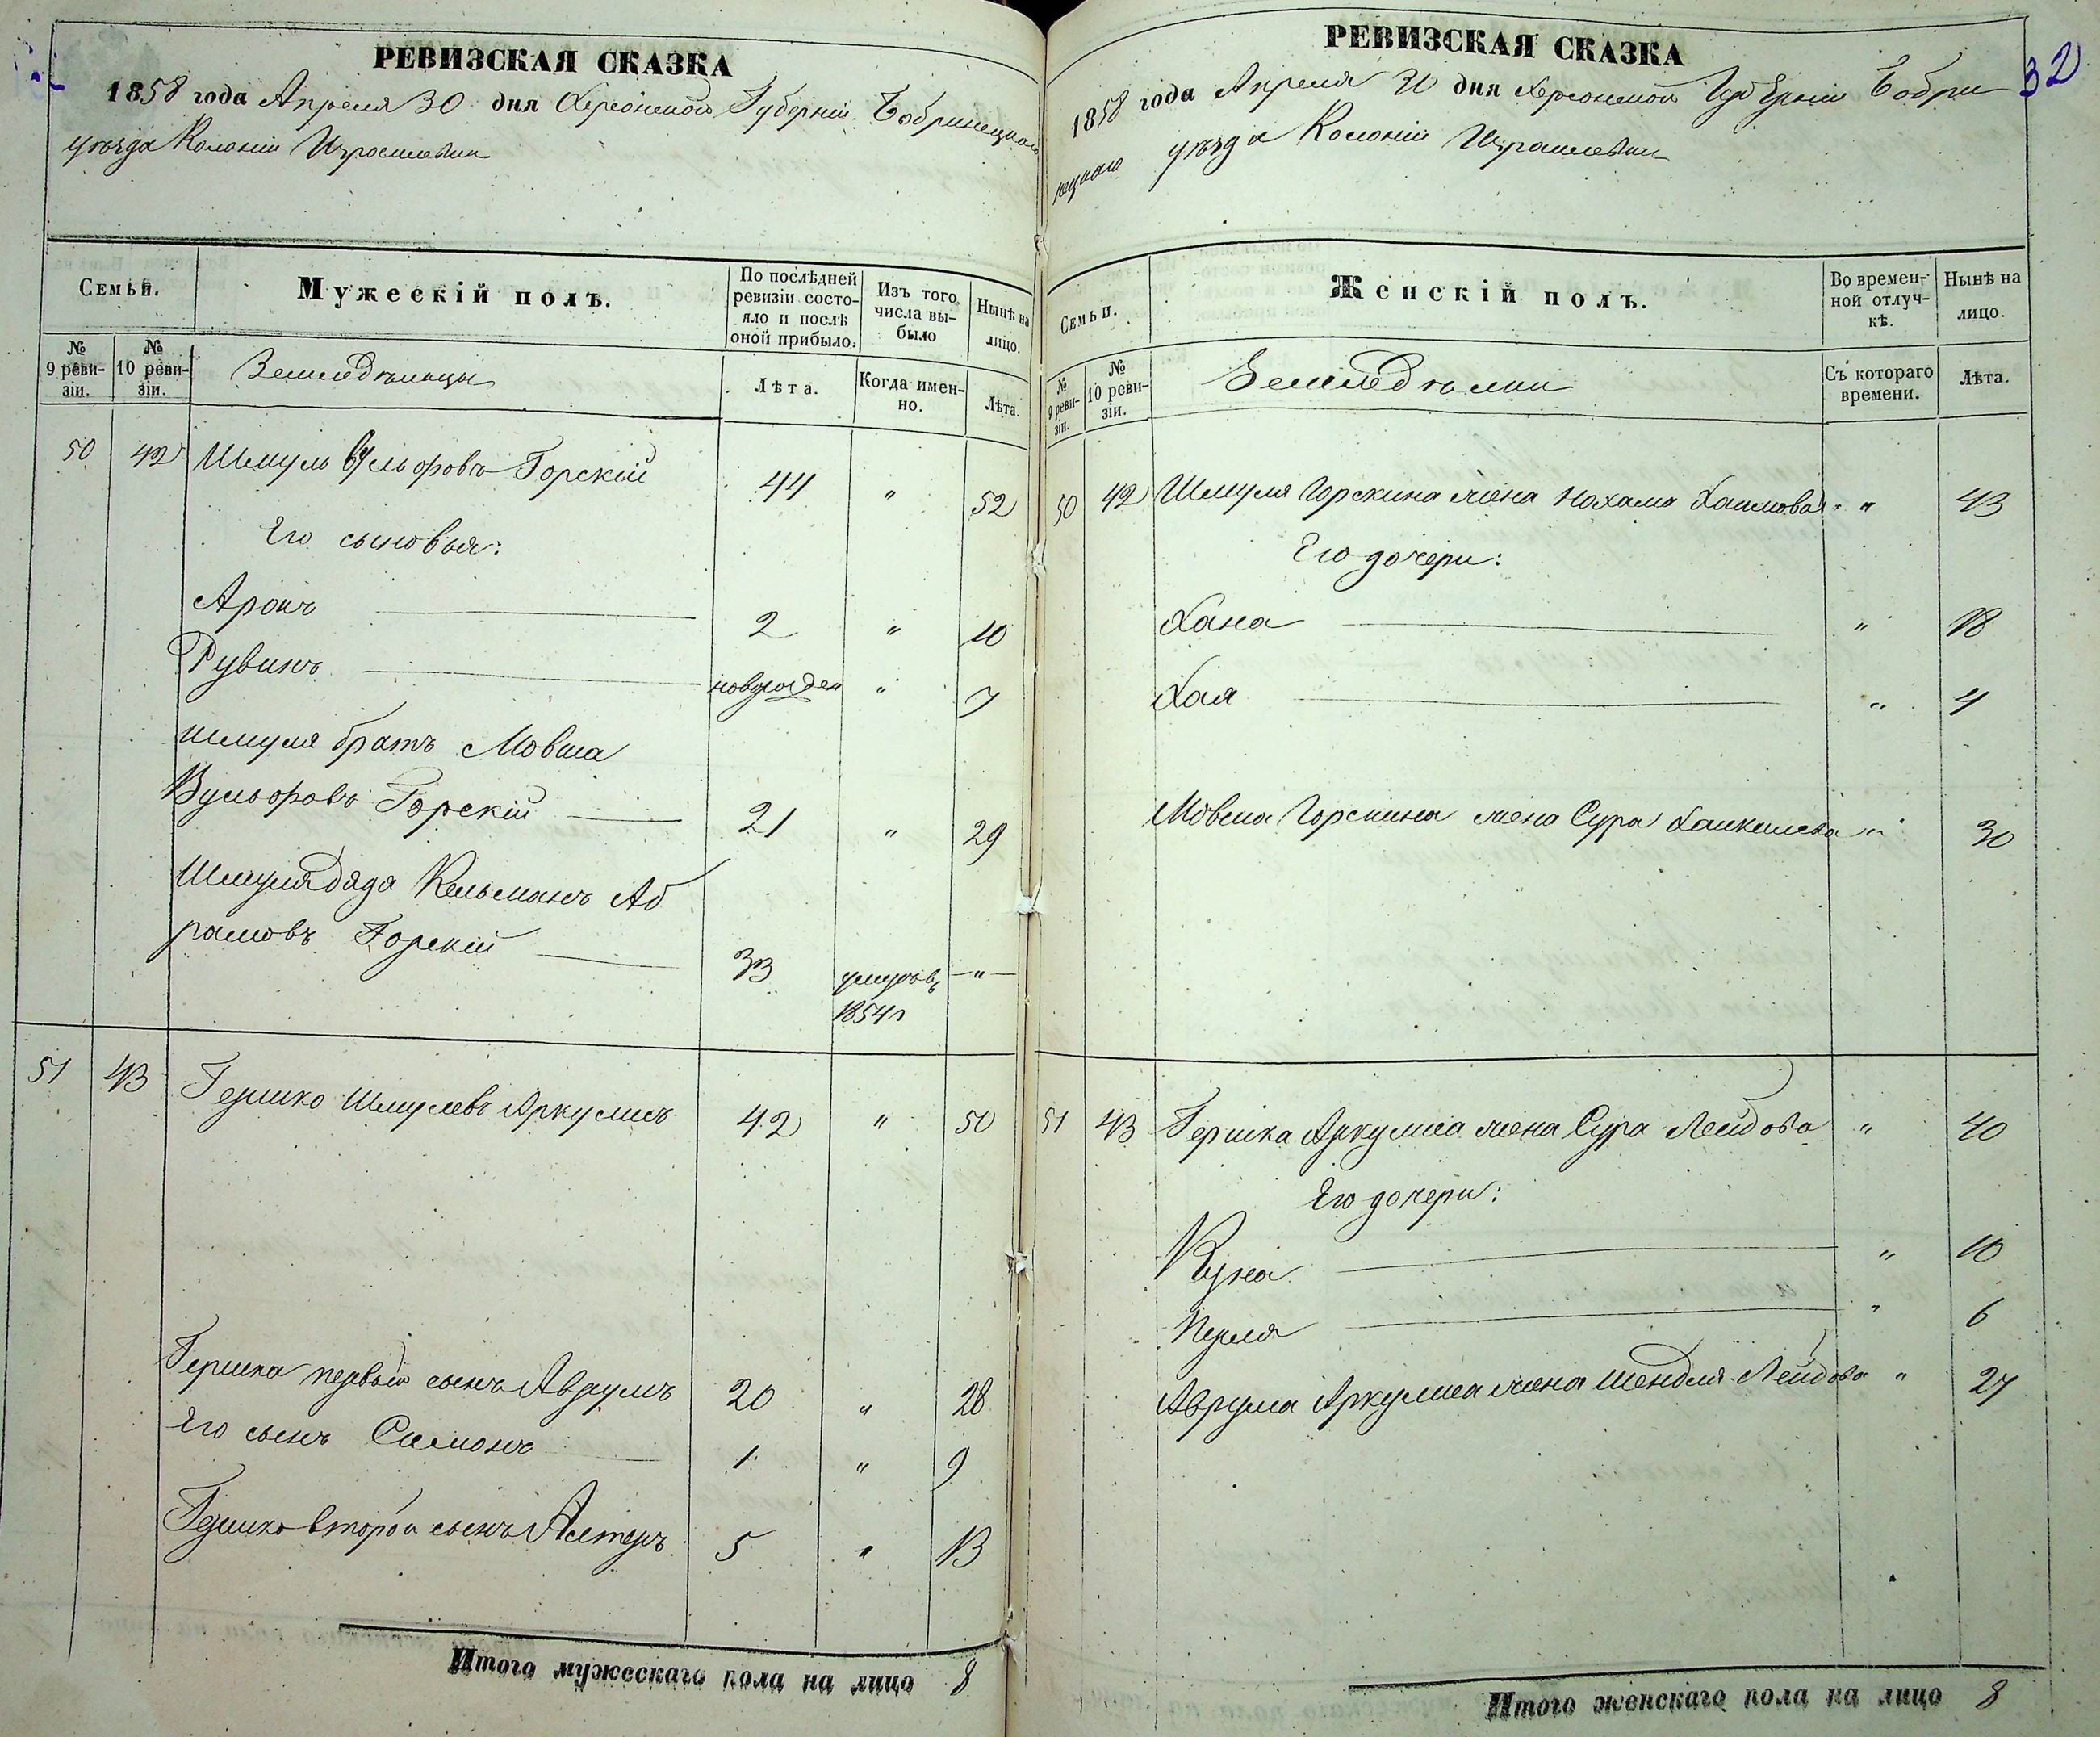 РЕВИЗСКАЯ СКАЗКА
1858 года Апреля 30 дня Херсонской Губерніи Бобринецкаго
уезда Колоніи Израилевки
Семьи.
Мужескій полъ.
По послѣдней ревизіи состояло и послѣ оной прибыло.
Изъ того числа выбыло
Нынѣ на лицо.
№ 9 ревизіи.
№ 10 ревизіи.
Земледѣльцы
Лѣта.
Когда именно.
Лѣта.
50 42 Шмуль Вульфовъ Горскій 44 " 52
Его сыновья:
Аронъ 2 " 10
Рувинъ новорожден " 7
Шмуля братъ Мовша
Вульфовъ Горскій 21 " 29
Шмуля дядя Кельманъ Аб
рамовъ Горскій 33 умеръ въ — " —
1854 г
51 43 Гершко Шмулевъ Аркулисъ 42 " 50
Гершка первый сынъ Аврумъ 20 " 28
Его сынъ Симонъ 1 " 9
Гершко второй сынъ Алтеръ 5 " 13
Итого мужескаго пола на лицо 8
32
РЕВИЗСКАЯ СКАЗКА
1858 года Апреля 30 дня Херсонской Губерніи Бобри
нецкаго уезда Колоніи Израилевки
Семьи.
Женскій полъ.
Во временной отлучкѣ.
Нынѣ на лицо.
№ 9 ревизіи.
№ 10 ревизіи.
Земледѣлки
Съ котораго времени.
Лѣта.
50 42 Шмуля Горскина жена Нохама Хаимовая " 43
Его дочери:
Хана " 18
Хая " 4
Мовша Горскина жена Сура " 30
51 43 Гершка Аркулиса жена Сура Лейбова " 40
Его дочери:
" 10
Перля " 6
Аврума Аркулиса жена Шендля Лейбова " 27
Итого женскаго пола на лицо 8